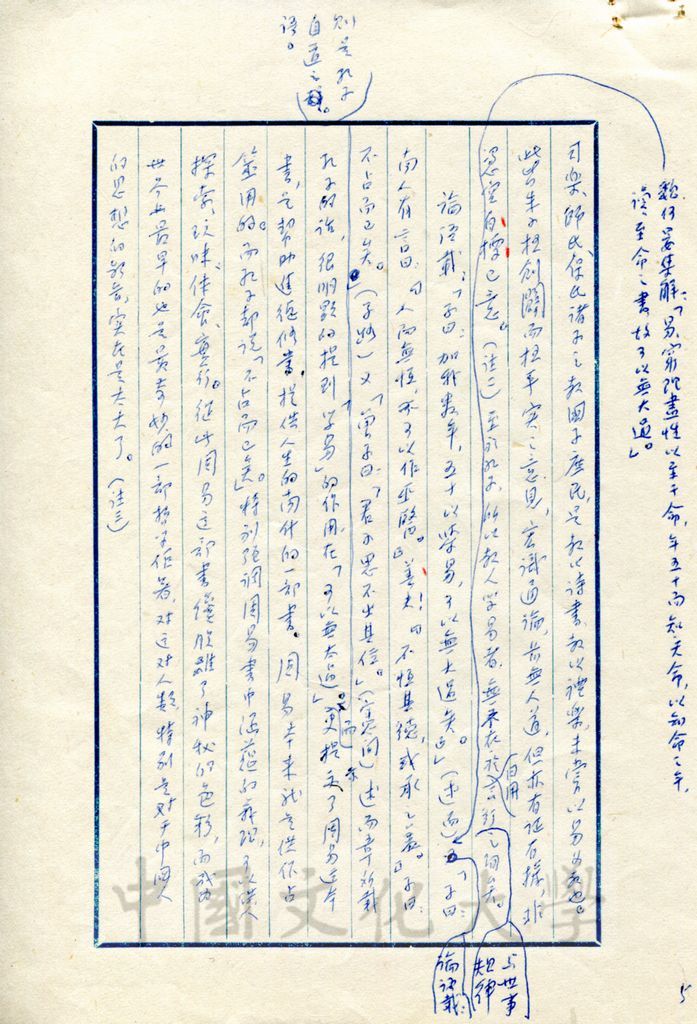 魏何晏集解：「易窮理盡性以至于命，年五十而知天命，以知命之年，
讀至命之書，故可以無大過。」
司樂、師氏、保氏諸子之教國子庶民，是教以詩書，教以禮樂，未嘗以易為教也。
此皆朱子極創闢而極平實之意見，宏識通論，昔無人道，但亦有証有據，非
憑空自擡己意。（註二）至於孔子所以教人學易者，無乘在於日用
之間
與世事
規律
論語載：
論語載：「子曰：加我數年，五十以學易，可以無大過矣。」（述而）「子曰：
南人有言曰：『人而無恆，不可以作巫醫。』善夫！『不恆其德，或承之羞。』子曰：
不占而已矣。」（子路）又「曾子曰：『君子思不出其位。』」（憲問）述而章所載
則是孔子
自道之
語。
孔子的話，很明顯的提到「學易」的作用在「可以無大過」，而更提示了周易這本
書，是幫助進德修業，提供人生的南針的一部書。周易本來就是供作占
筮用的。而孔子卻說「不占而已矣」。特別強調周易書中涵蘊的義理，可以供人
探索、玩味、体會、實行。從此周易這部書纔脫離了神秘的色彩，而成為
世界上最早的也是最奇妙的一部哲學作品，對這對人類，特別是對于中國人
的思想的影響，實在是太大了。（註三）
5
中國文化大學